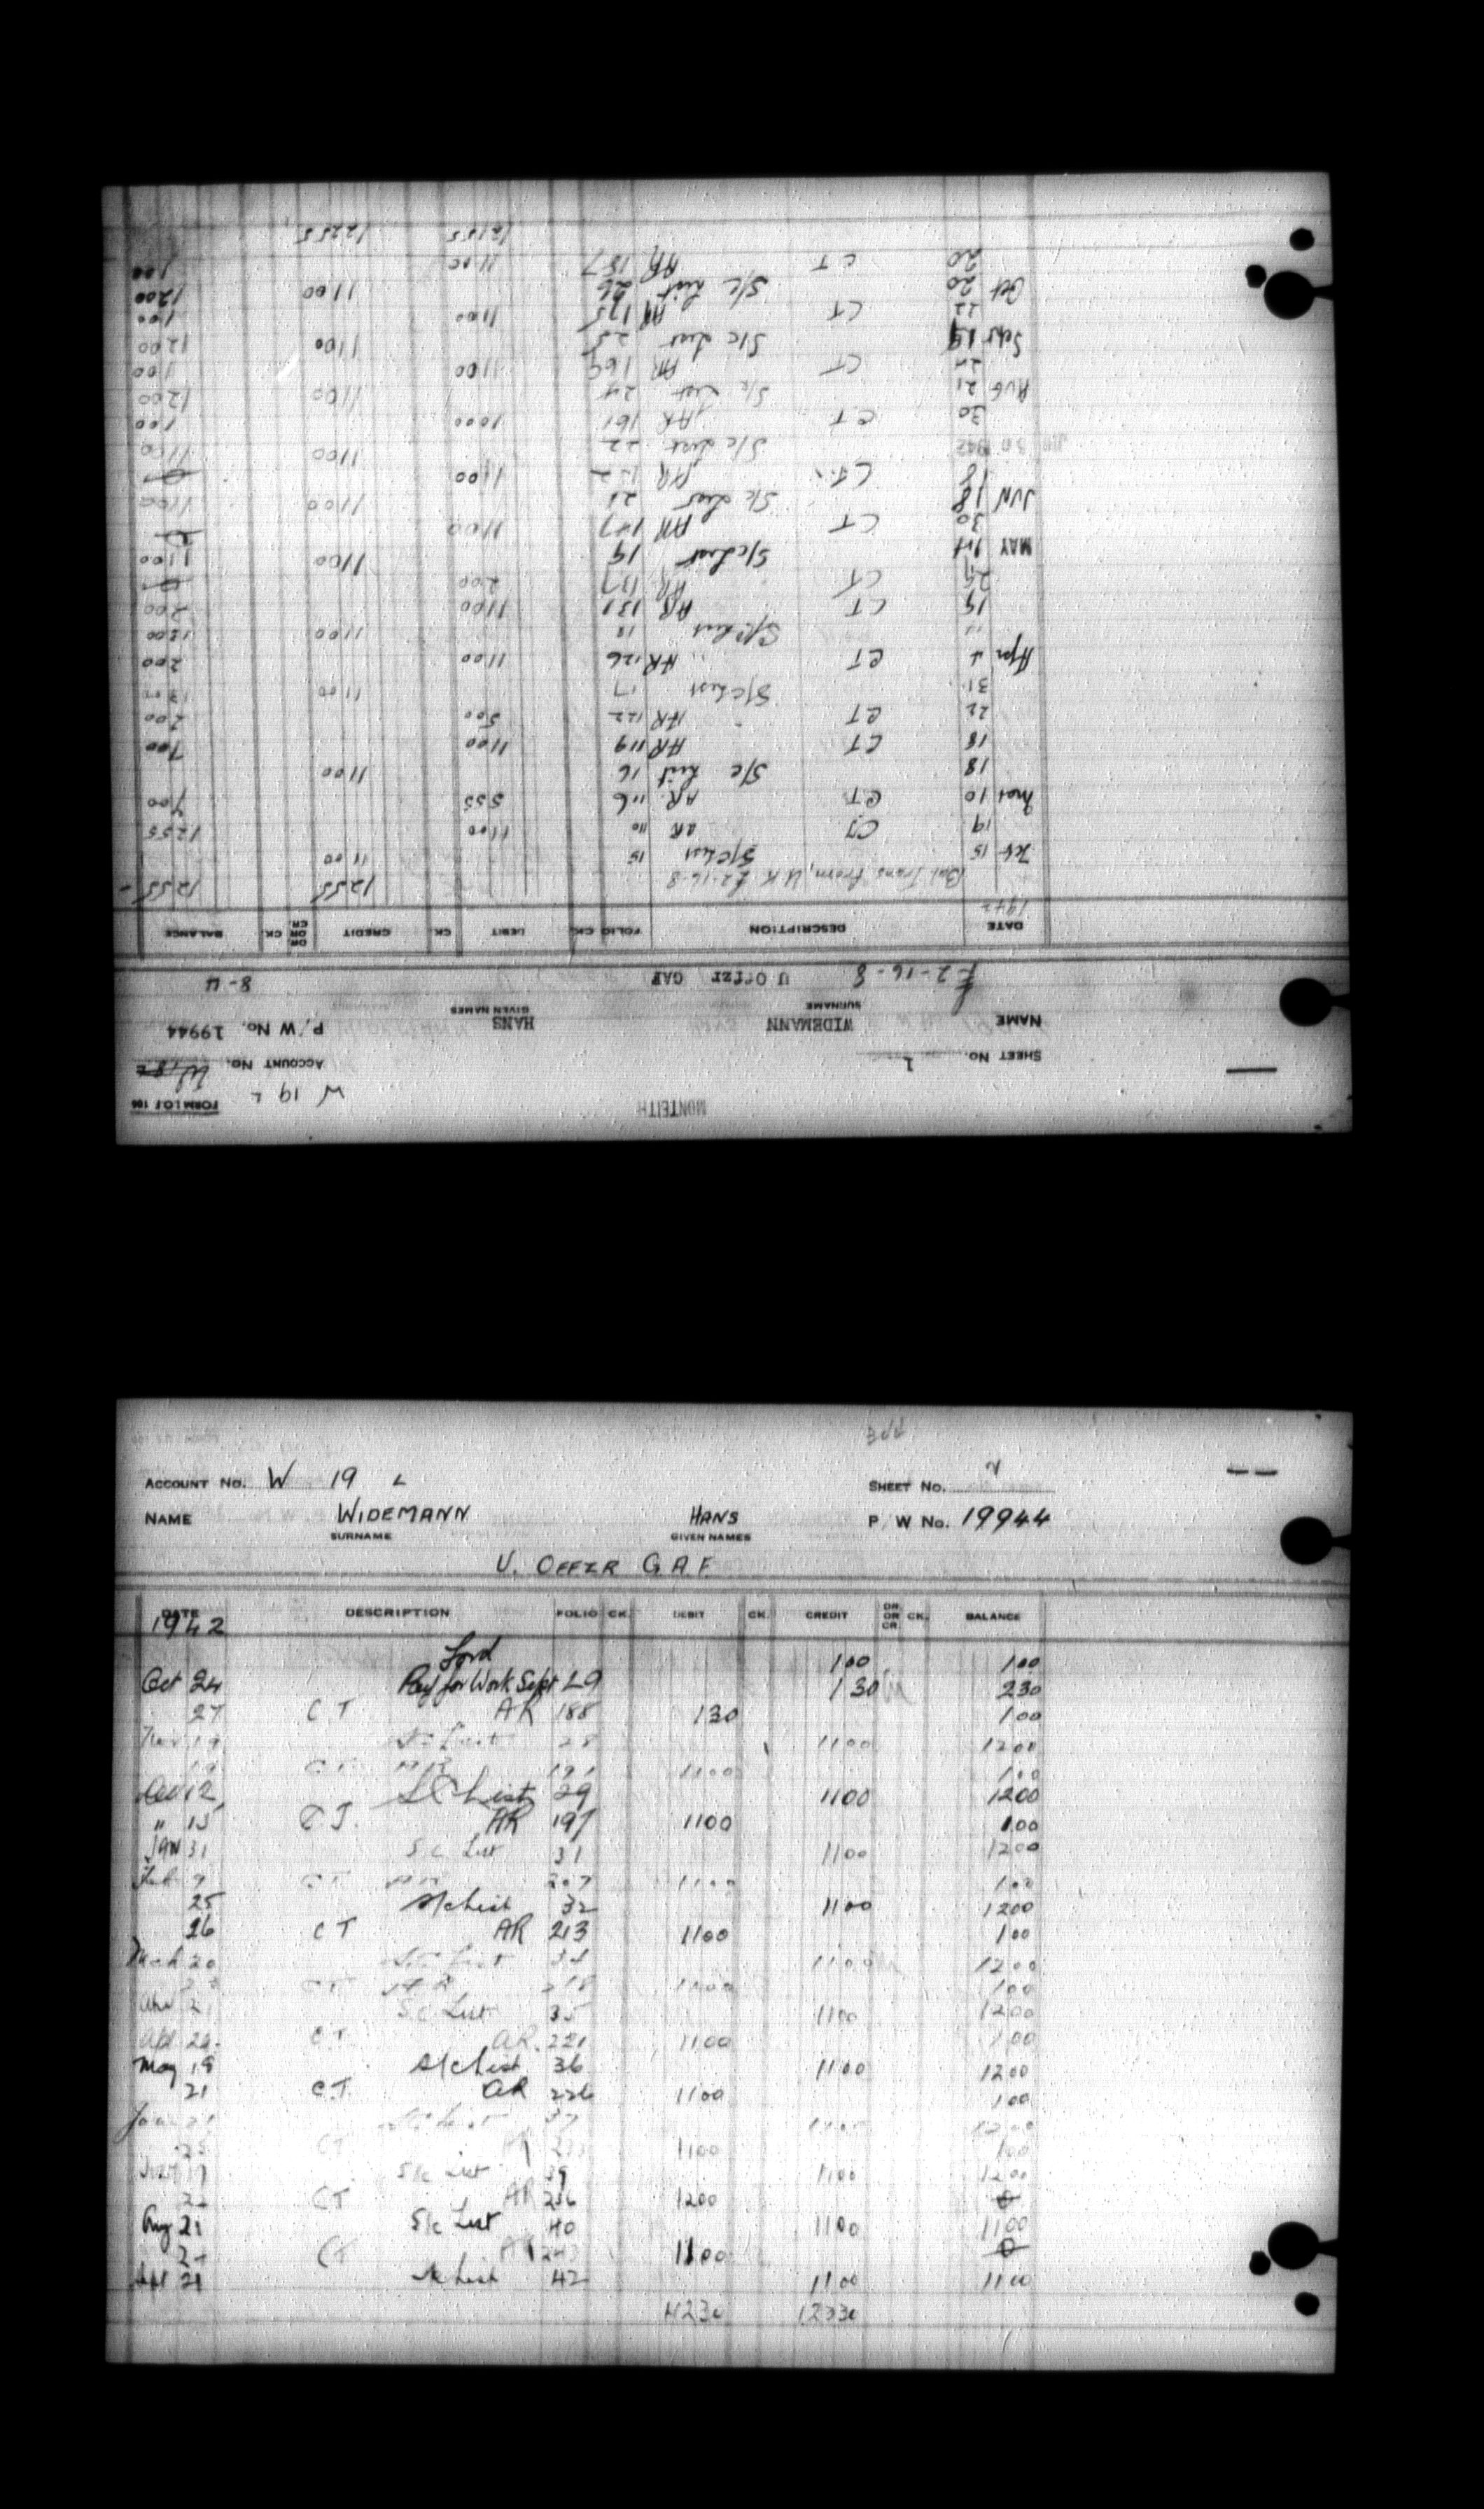 MONTEITH
FORM I.O.F. 106
W 19 L
SHEET No. 1 ACCOUNT No.
NAME WIDEMANN HANS P/W No. 19944
SURNAME GIVEN NAMES
£2-16-8 U Offzr GAF 8-4
DATE DESCRIPTION FOLIO CK. DEBIT CK. CREDIT DR. OR CR. CK. BALANCE
1942
Bal Trans from U.K £2-16-8 1255 1255
Feb 15 S/c List 15 1100
19 CT AR 110 1100 1255
Mar 10 CT AR 116 555 700
18 S/c List 16 1100
18 CT AR 119 1100 700
22 CT AR 122 500 200
31 S/c List 17 1100 1300
Apr CT AR 126 1100 200
" S/c List 18 1100 1300
19 CT AR 131 1100 200
CT AR 137 200 0
MAY S/c List 19 1100 1100
30 CT AR 147 1100 0
JUN 18 S/c List 21 1100 1100
18 CT AR 1100 0
JUN 30 1942 S/c List 22 1100 1100
30 CT AR 161 1000 100
AUG 21 S/c List 24 1100 1200
CT AR 169 1100 100
Sept 19 S/c List 25 1100 1200
22 CT AR 175 1100 100
Oct 20 S/c List 26 1100 1200
20 CT AR 187 1100 100
12155 12255
ACCOUNT No. W 19 L SHEET No. 2
NAME WIDEMANN HANS P/W No. 19944
SURNAME GIVEN NAMES
U. OFFZR G.A.F.
DATE DESCRIPTION FOLIO CK. DEBIT CK. CREDIT DR. OR CR. CK. BALANCE
1942
Ford 100 100
Oct 24 Pay for Work Sept 29 130 230
27 CT AR 188 130 100
Nov 19 S/c List 28 1100 1200
19 CT AR 191 1100 100
Dec 12 S/C List 29 1100 1200
" 15 CT. AR 197 1100 100
JAN 31 S/c List 31 1100 1200
Feb 9 CT AR 207 1100 100
25 S/c List 32 1100 1200
26 CT AR 213 1100 100
March 20 S/c List 1100 1200
CT AR 218 1100 100
S/c List 35 1100 1200
CT AR. 221 1100 100
May 19 S/c List 36 1100 1200
21 C.T. AR 226 1100 100
June 21 S/c List 37 1100 1200
25 CT AR 1100 100
S/c List 39 1100 1200
CT AR 236 1200 0
Aug 21 S/c List 40 1100 1100
CT AR 243 1100 0
Sept 21 S/c List 42 1100 1100
11230 12330